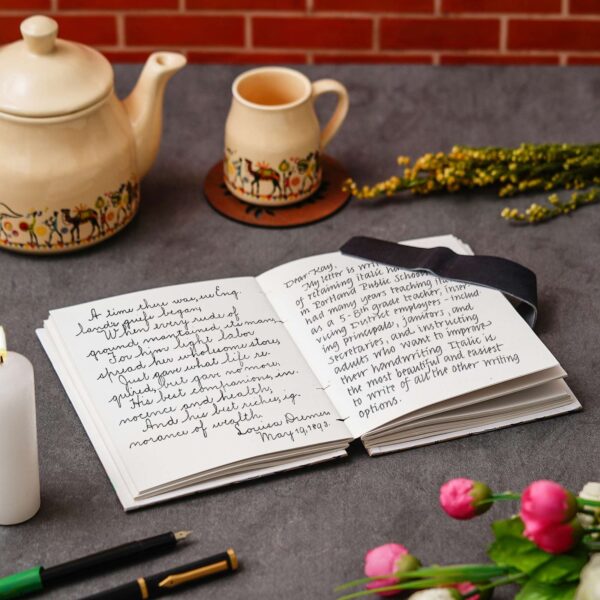 A time there was, ere Eng-
land's griefs began,
When every rood of
ground maintained its man;
For him light labor
spread her wholesome store,
Just gave what life re-
quired, but gave no more.
His best companions, in-
nocence and health;
And his best riches, ig-
norance of wealth.
Louisa
May 19, 1893.
Dear Kay,
My letter is
of retaining italic
in Portland Public School
had many years teaching
as a 5-8th grade teacher,
vicing District employees - includ
ing principals, janitors, and
secretaries, and instructing
adults who want to improve
their handwriting. Italic is
the most beautiful and easiest
to write of all the other writing
options.